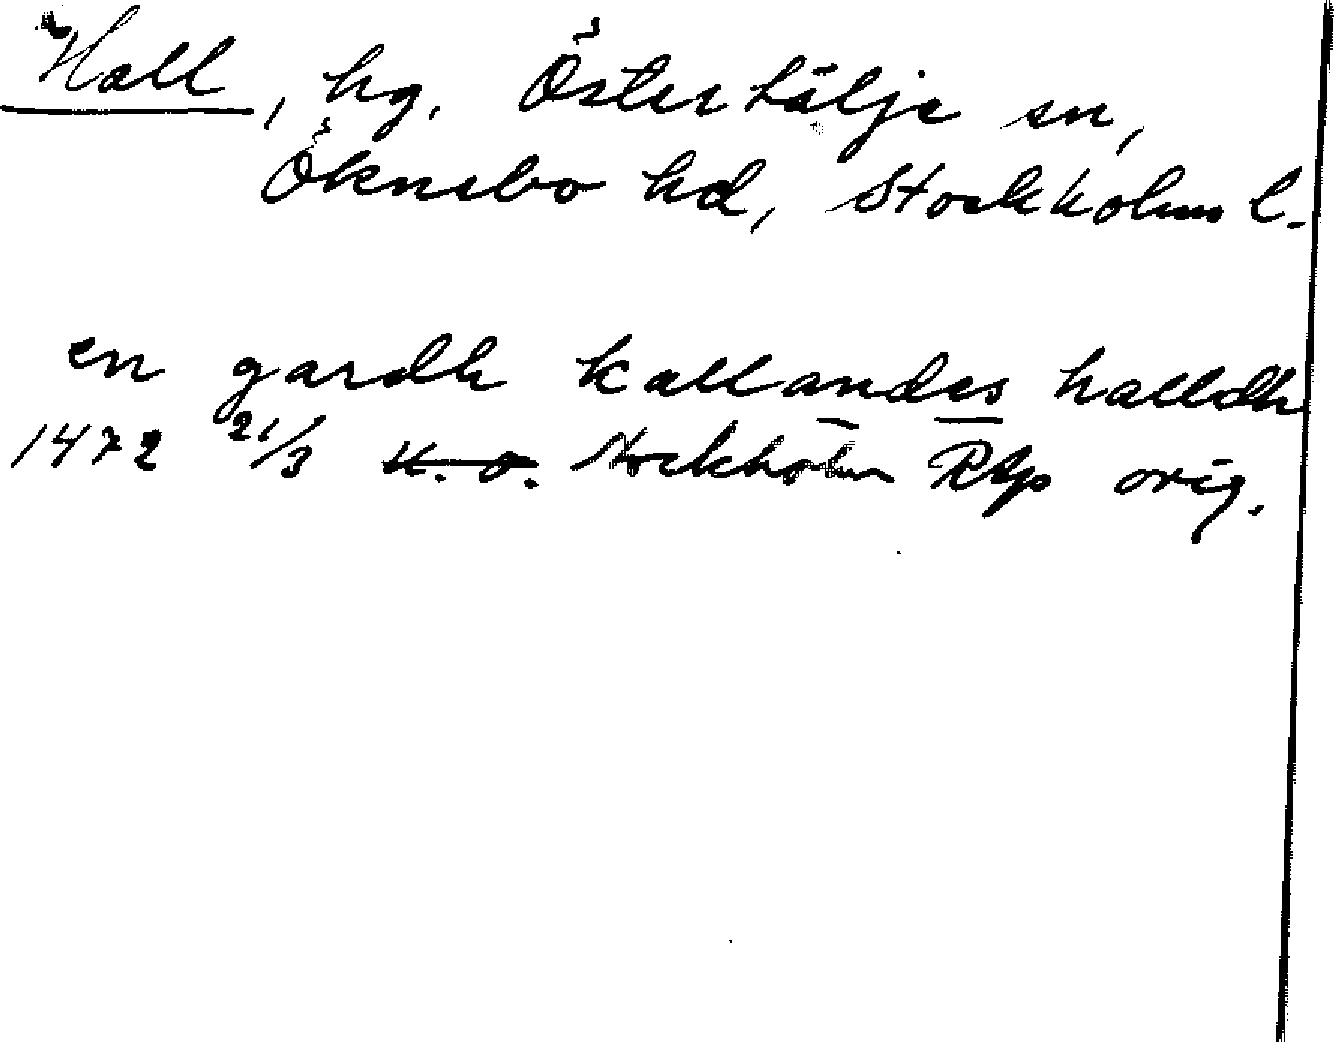 Hall, hg. Östertälje sn,
Öknebo hd, Stockholms l.
en gardh kallandes halldh
1472 21/3 U. O. Stockholm RAp orig.